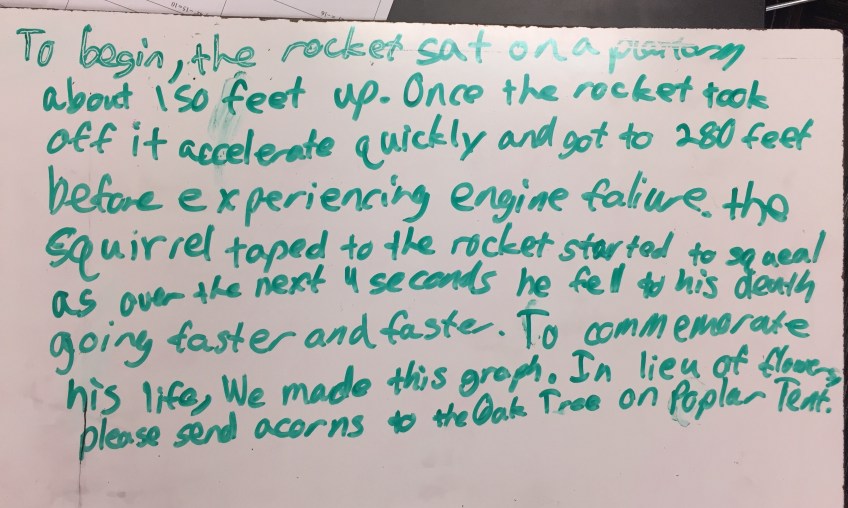 To begin, the rocket sat on a platform
about 150 feet up. Once the rocket took
off it accelerate quickly and got to 280 feet
before experiencing engine faliure. the
squirrel taped to the rocket started to squeal
as over the next 4 seconds he fell to his death
going faster and faster. To commemorate
his life, We made this graph. In lieu of flowers,
please send acorns to the Oak Tree on Poplar Tent.